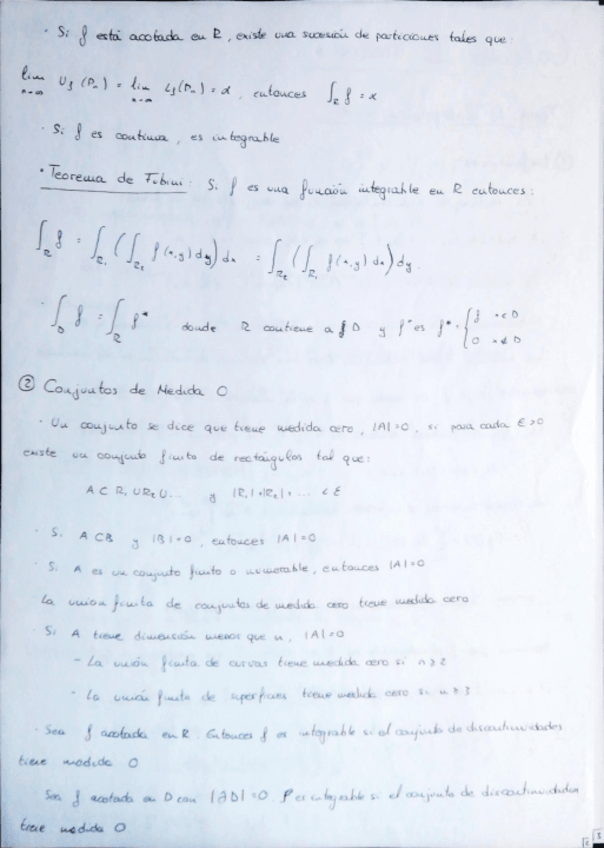 · Si f está acotada en R, existe una sucesión de particiones tales que:
lim n→∞ Uf(Pn) = lim n→∞ Lf(Pn) = α, entonces ∫_R f = α
· Si f es continua, es integrable
· Teorema de Fubini: Si f es una función integrable en R entonces:
∫_R f = ∫_R₁ (∫_R₂ f(x,y) dy) dx = ∫_R₂ (∫_R₁ f(x,y) dx) dy.
· ∫_D f = ∫_R f* donde R contiene a D y f* es f* = { f x∈D
0 x∉D
② Conjuntos de Medida 0
· Un conjunto se dice que tiene medida cero, |A|=0, si para cada ε>0
existe un conjunto finito de rectángulos tal que:
A ⊂ R₁ ∪ R₂ ∪ ... y |R₁|+|R₂|+ ... < ε
· Si A ⊂ B y |B|=0, entonces |A|=0
· Si A es un conjunto finito o numerable, entonces |A|=0
La unión finita de conjuntos de medida cero tiene medida cero
· Si A tiene dimensión menor que n, |A|=0
- La unión finita de curvas tiene medida cero si n≥2
- La unión finita de superficies tiene medida cero si n≥3
· Sea f acotada en R. Entonces f es integrable si el conjunto de discontinuidades
tiene medida 0
Sea f acotada en D con |∂D|=0. f es integrable si el conjunto de discontinuidades
tiene medida 0